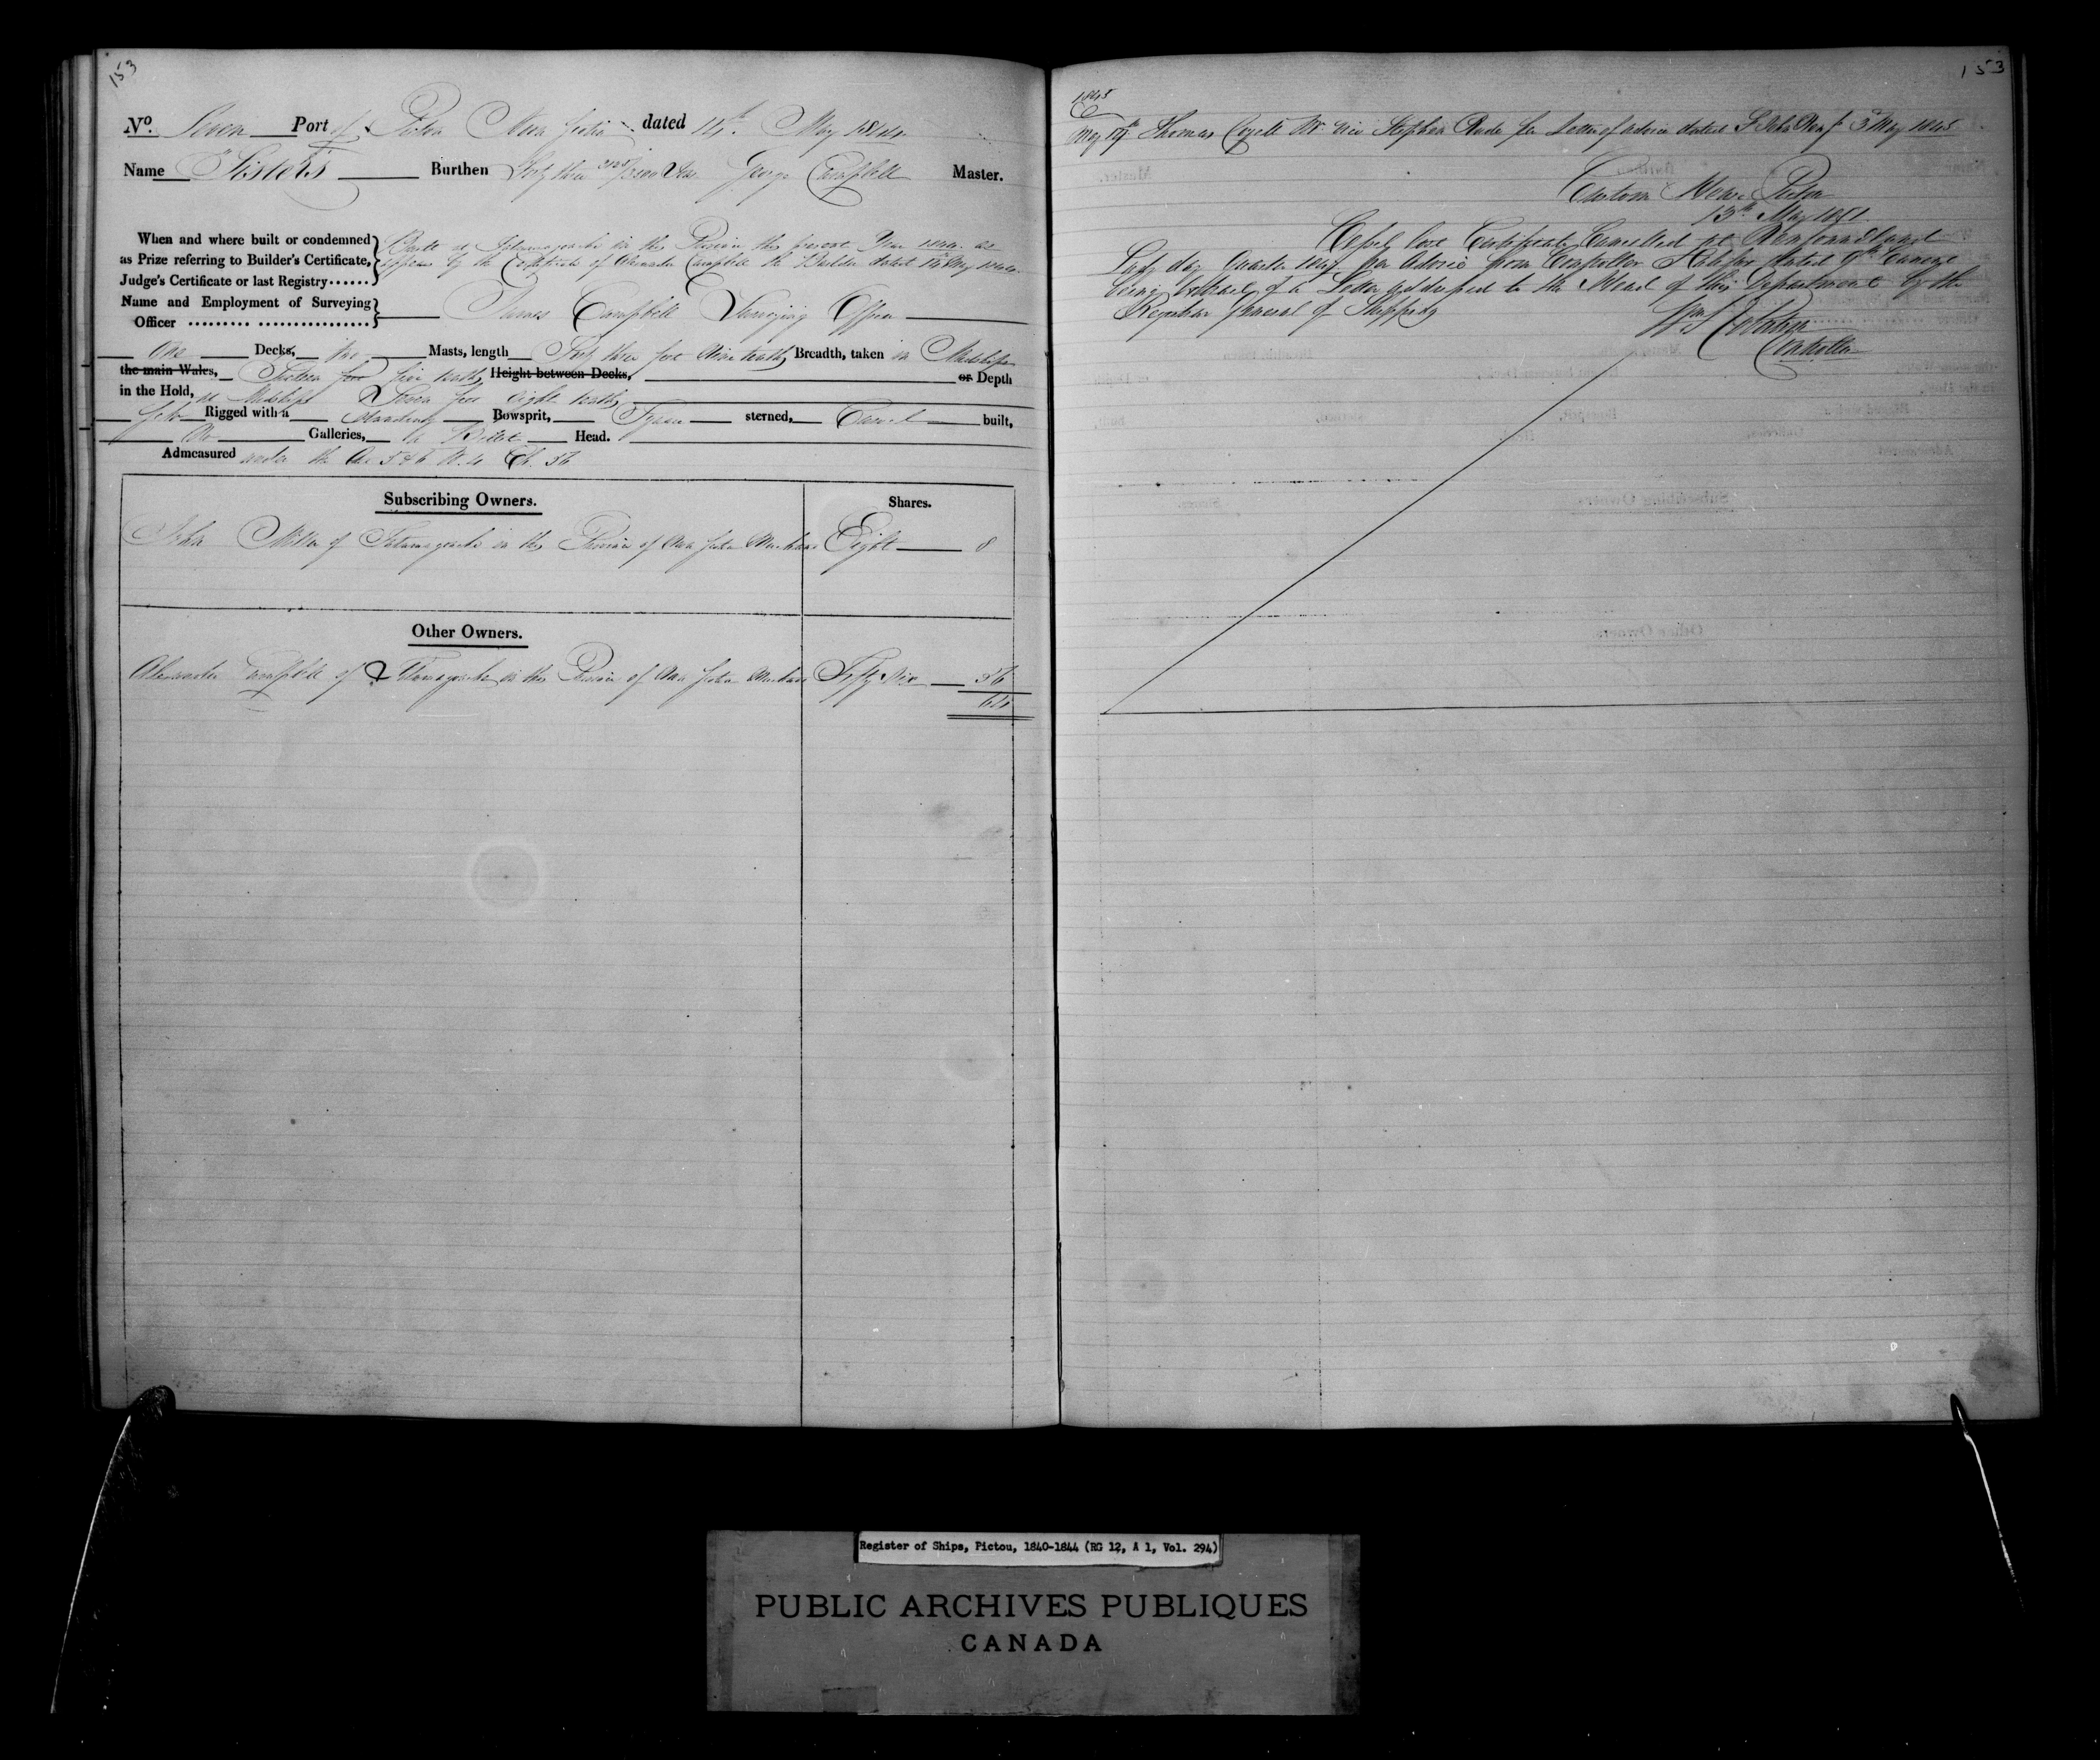 153
No. Seven Port of Pictou Nova Scotia dated 14th May 1844
Name "Sisters" Burthen Forty three /3500 Tons George Campbell Master.
When and where built or condemned as Prize referring to Builder's Certificate, Judge's Certificate or last Registry......
Built at Tatamagouche in this Province this present Year 1844 as
appears by the Certificate of Alexander Campbell the Builder dated May 1844
Name and Employment of Surveying Officer ......... ................
James Campbell Surveying Officer
One Decks, two Masts, length Forty three feet nine tenths Breadth, taken in Midships
the main Wales, feet five tenths Height between Decks, or Depth
in the Hold, at Midships Seven feet eight tenths
Rigged with a Standing Bowsprit, Square sterned, Carvel built,
No Galleries, a Billet Head.
Admeasured under the Act 5 & 6 W. 4 Ch. 56
Subscribing Owners. Shares.
John Millar of Tatamagouche in this Province of Nova Scotia Merchant Eight 8
Other Owners.
Alexander Campbell of Tatamagouche in this Province of Nova Scotia Merchant Fifty Six 56
64
153
1845
May 19th Thomas vice Stephen per Letter of advice dated St John Newf 3d May 1845
Custom House Pictou
13th May 1851
Vessel lost Certificate Cancelled at Newfoundland
Lady day Quarter per Advice from Controller dated 9th
being extract of a Letter addressed to the Head of this Department by the
Registrar General of Shipping
Controller
Register of Ships, Pictou, 1840-1844 (RG 12, A 1, Vol. 294)
PUBLIC ARCHIVES PUBLIQUES
CANADA